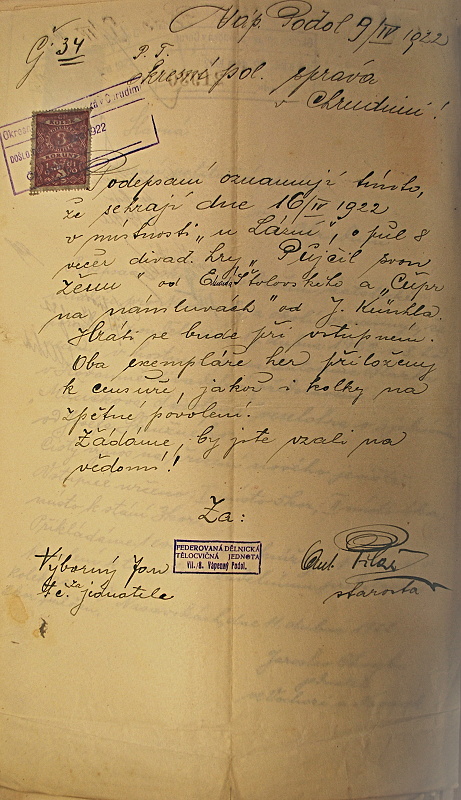 Váp. Podol 9/IV 1922
Č. 34
P. T.
Okresní pol. správa
v Chrudimi!
v Chrudimi
1922
DOŠLO
KOLEK
3
Podepsaní oznamují tímto,
že sehrají dne 16/IV 1922
v místnosti „u Lázní“, o půl 8
večer divad. hry „Půjčil svou
ženu“ od Štolovského a „Cupr
na námluvách“ od J. Küchla.
Hráti se bude při vstupném.
Oba exempláře her přiloženy
k censuře, jakož i kolky na
zpětné povolení.
Žádáme, by jste vzali na
vědomí!
Za:
FEDEROVANÁ DĚLNICKÁ
TĚLOCVIČNÁ JEDNOTA
VII./8. Vápenný Podol.
Výborný Jan
t. č. za jednatele
Ant. Pilař
starosta